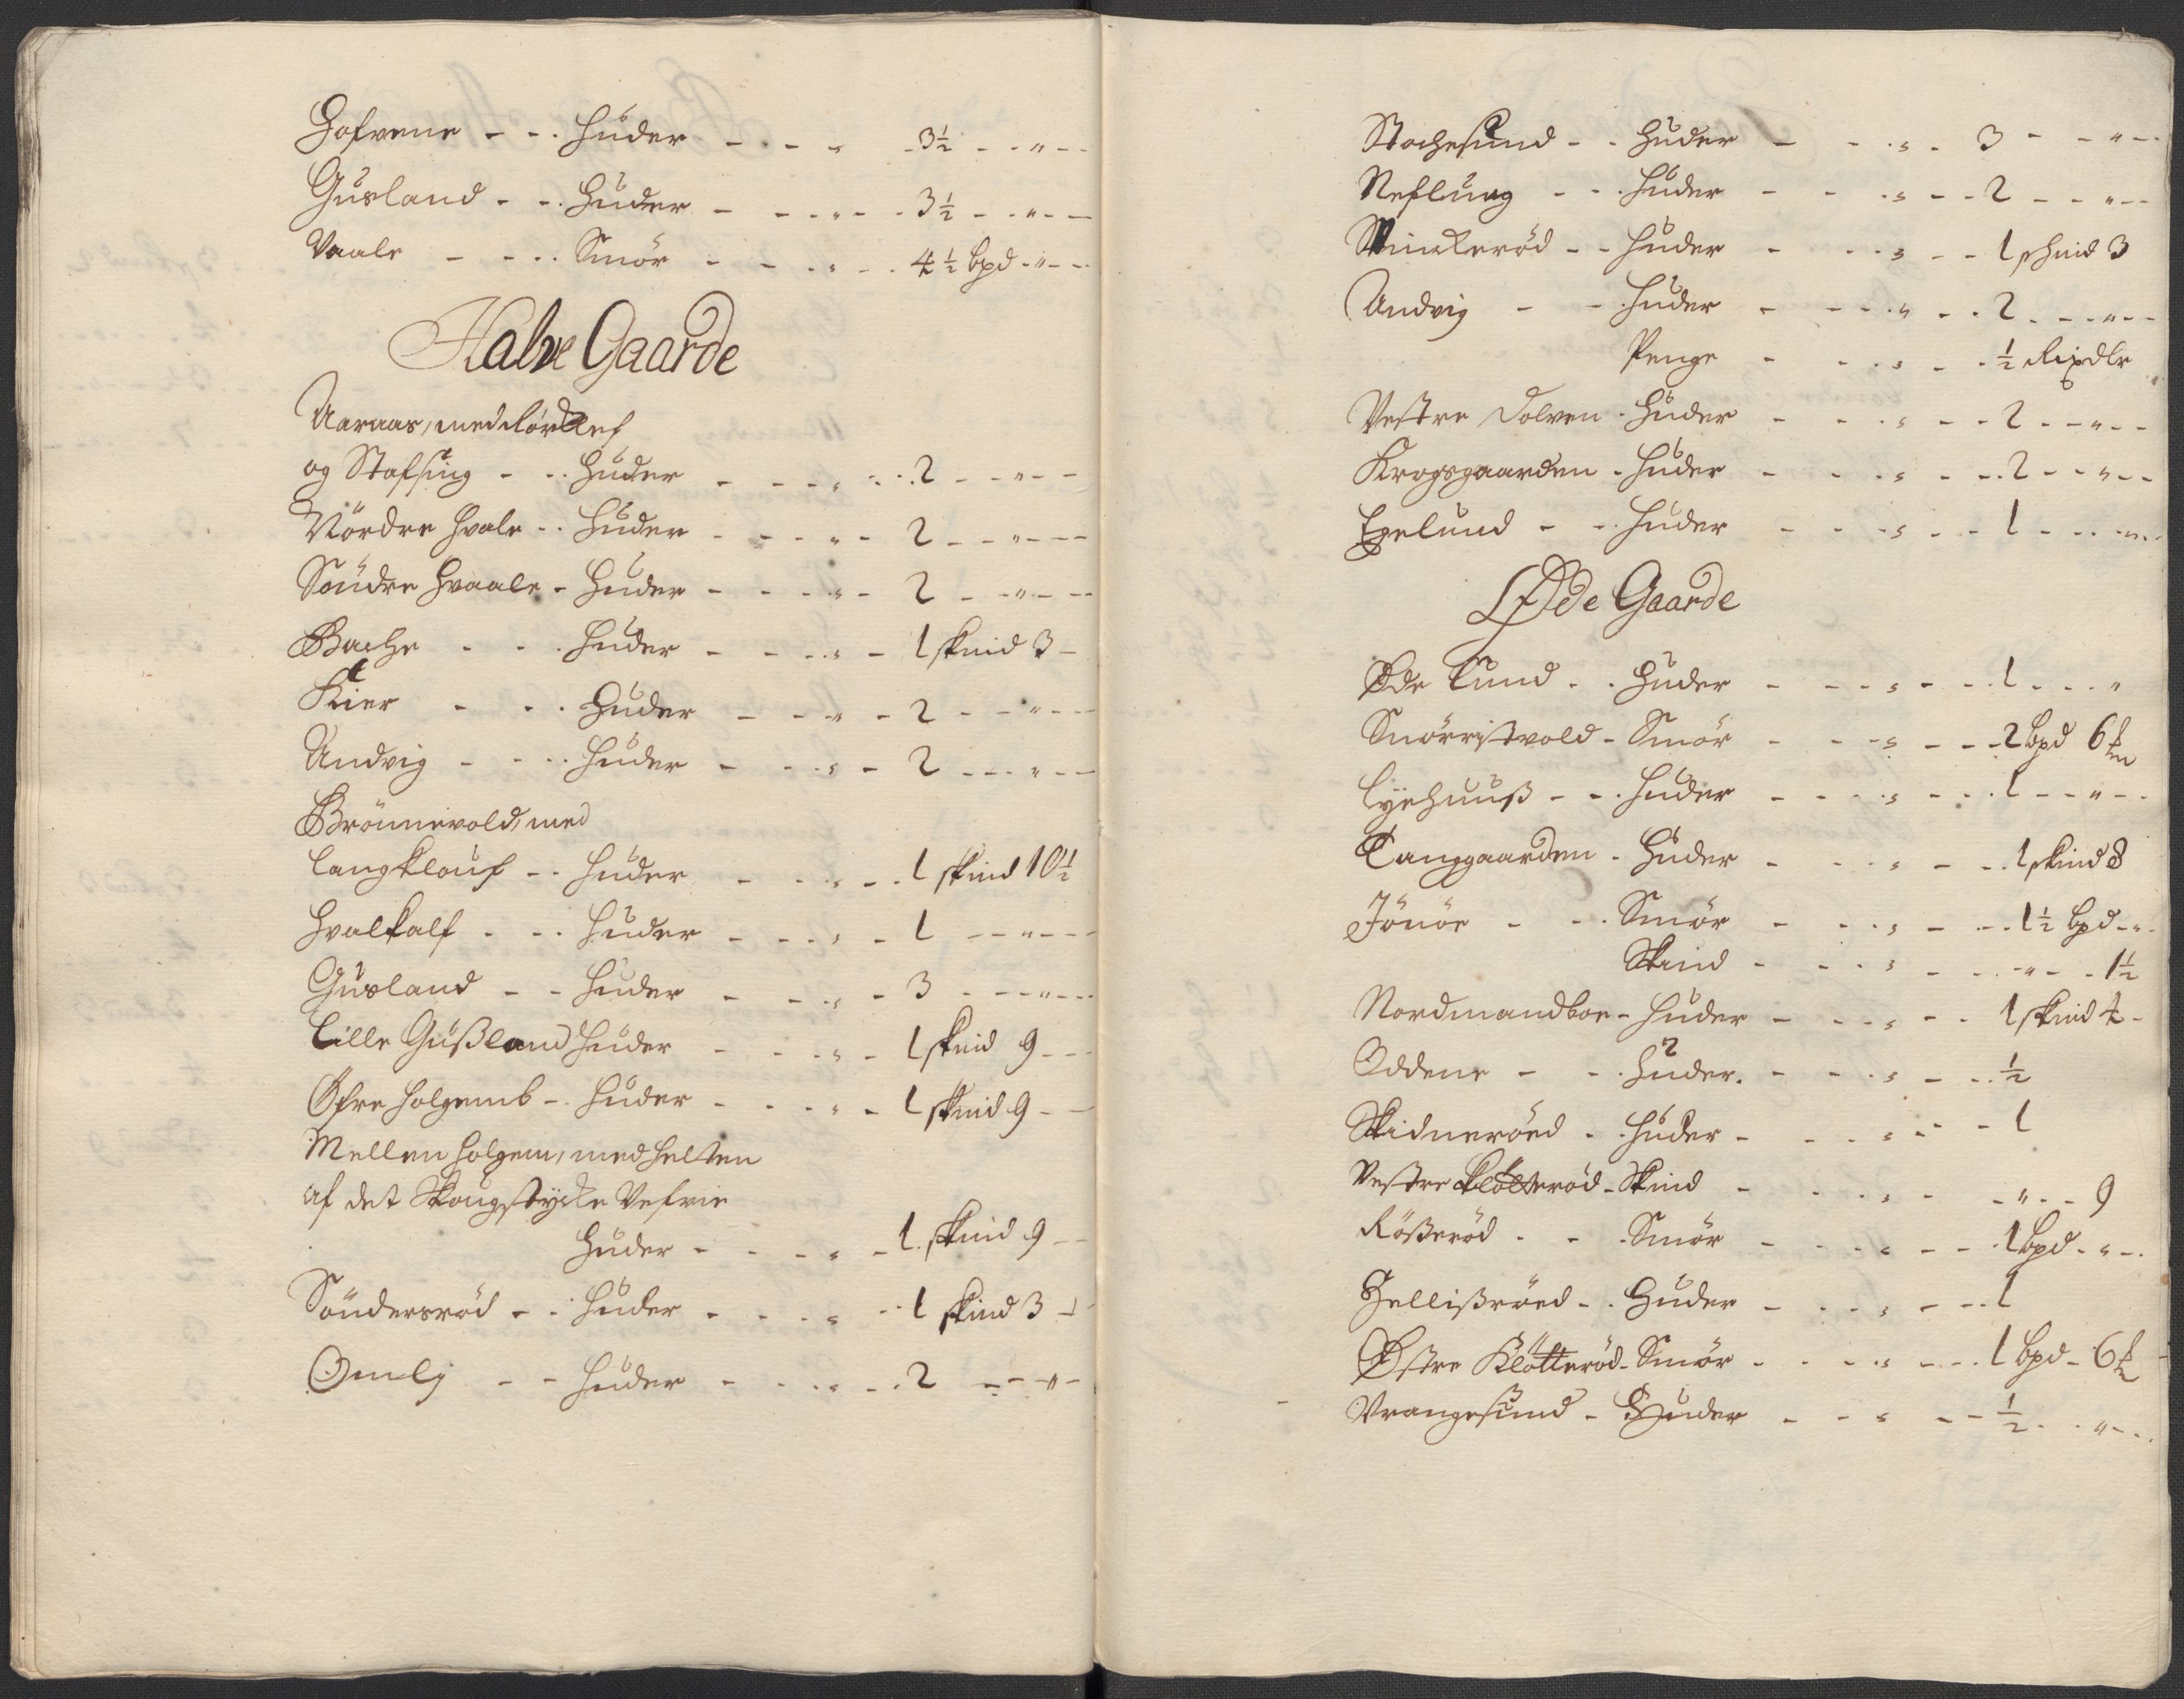 Hofvene - - Huder - - - 3½ - - " - -
Gusland - - Huder - - - " - - 3½ - - " - -
Vaale - - - Smör - - - " - - 4½ bpd - " - -
Halve Gaarde
Aaraas, med
og Stafsing - - Huder - - - " - - 2 - - " - -
Nördre Hvale - - Huder - - - " - 2 - - " - - -
Söndre Hvaale - Huder - - - " - 2 - - " - - -
Bache - - - Huder - - - " - 1 skind 3 -
Kier - - - Huder - - - " - 2 - - " - - -
Andvig - - - Huder - - - " - 2 - - - " - -
Brönnevold, med
Langklouf - - Huder - - - " - - 1 skind 10½
Hvalkalf - - - Huder - - - " - 1 - - " - - -
Gusland - - Huder - - - " - 3 - - - " - - -
Lille Gußland Huder - - - " - 1 skind 9 - - -
Øfre Holgemb - Huder - - - " - 1 skind 9 - -
Mellem Holgem, med Helten
af det Skougstycke Vefrie
Huder - - - " - 1. skind 9 - -
Söndersröd - - Huder - - - " - - 1 skind 3 -
Omly - - Huder - - - " - - 2 - - " -
Stochesund - - Huder - - - " - 3 - - " - -
Neflung - - - Huder - - - " - - 2 - - " - -
Huder - - - " - - 1 skind 3
Andvig - - Huder - - - " - - 2 - - - " - -
Penge - - - " - - ½ Rixdlr
Vestre Dolven - Huder - - - " - - 2 - - " - -
Krogsgaarden - Huder - - - " - - - 2 - - " - -
Egelund - - - Huder - - - " - - 1 - - - " - -
Øde Gaarde
Øde Lund - - Huder - - - " - - - 1 - - - "
Snörristvold - Smör - - - " - - - 2 bpd 6
Lÿehuuß - - - Huder - - - " - - - 1 - - " - -
Tanggaarden - Huder - - - " - - - 1 skind 8
Jönöe - - - Smör - - - " - - - 1½ bpd - " -
Skind - - - " - - - " - - 1½
Nordmandboe - Huder - - - " - - 1 skind 4 -
Oddene - - - Huder. - - - " - - - ½
Skidneröed - - Huder - - - " - - 1
Vestre Klötteröd - Skind - - - " - - " - - 9
Rößeröd - - - Smör - - - " - - - 1 bpd - " - -
Hellißröed - - Huder - - - " - - - 1
Østre Klötteröd - Smör - - - " - - - 1 bpd - 6
Vrangesund - Huder - - " - - ½ - - " - -